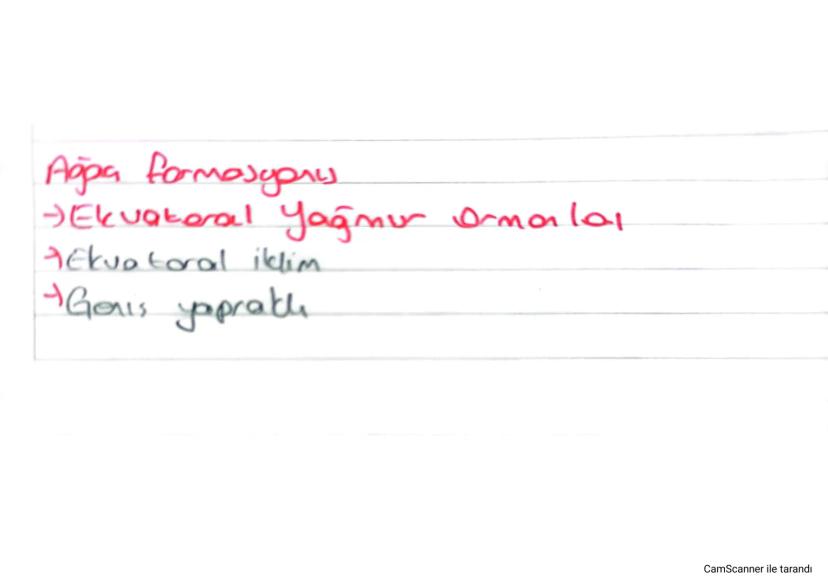 Ağaç formasyonu
→Ekvatoral Yağmur Ormanlar
→Ekvatoral iklim
→Genıs yapraklı
CamScanner ile tarandı